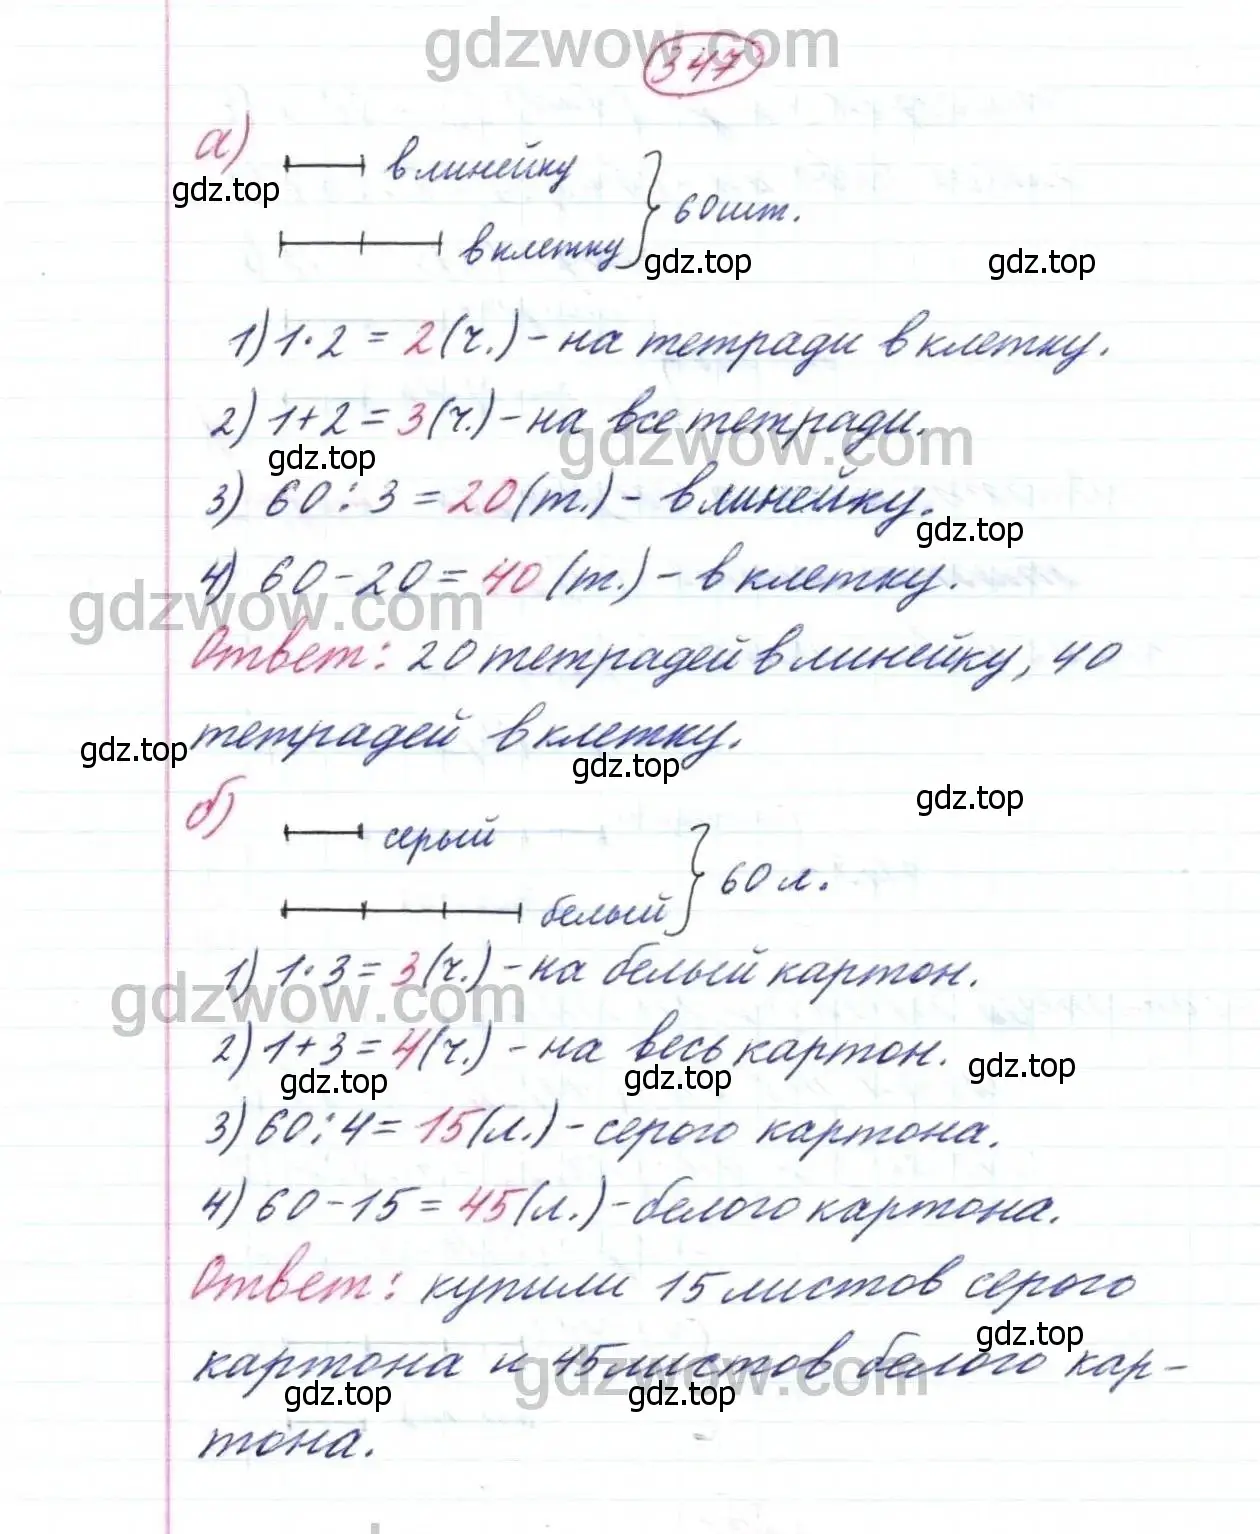 gdzwow.com
347
а)
в линейку
gdz.top
60шт.
в клетку
gdz.top
gdz.top
1) 1·2 = 2 (ч.) - на тетради в клетку.
2) 1+2 = 3 (ч.) - на все тетради.
gdzwow.com
gdz.top
3) 60 : 3 = 20 (т.) - в линейку.
gdz.top
4) 60 - 20 = 40 (т.) - в клетку.
gdzwow.com
Ответ: 20 тетрадей в линейку, 40
тетрадей в клетку.
gdz.top
gdz.top
gdz.top
б)
серый
60 л.
белый
1) 1·3 = 3 (ч.) - на белый картон.
gdzwow.com
2) 1+3 = 4 (ч.) - на весь картон.
gdz.top
gdz.top
gdz.top
3) 60 : 4 = 15 (л.) - серого картона.
4) 60 - 15 = 45 (л.) - белого картона.
Ответ: купили 15 листов серого
gdz.top
картона и 45 листов белого кар-
gdzwow.com
gdz.top
gdz.top
тона.